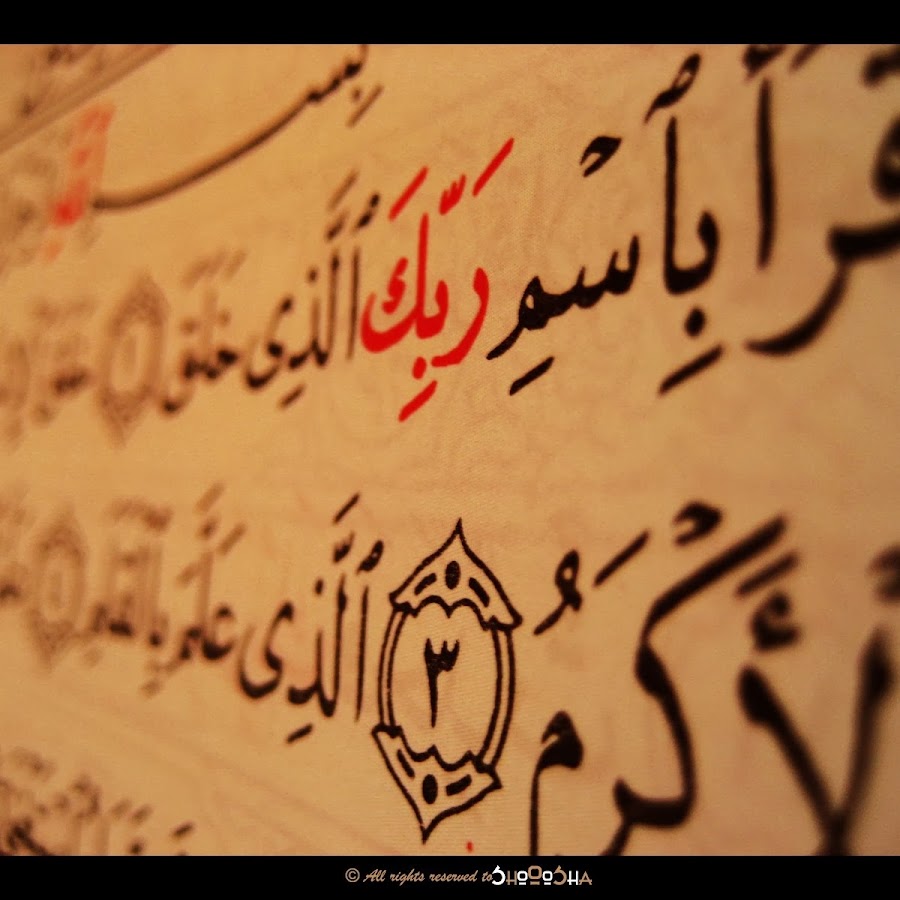 بِسْ
اللَّه
ٱقْرَأْ بِٱسْمِ رَبِّكَ ٱلَّذِى خَلَقَ ١ خَلَقَ
ٱلْأَكْرَمُ ٣ ٱلَّذِى عَلَّمَ بِٱلْقَلَمِ ٤
© All rights reserved to SHOOOSHA